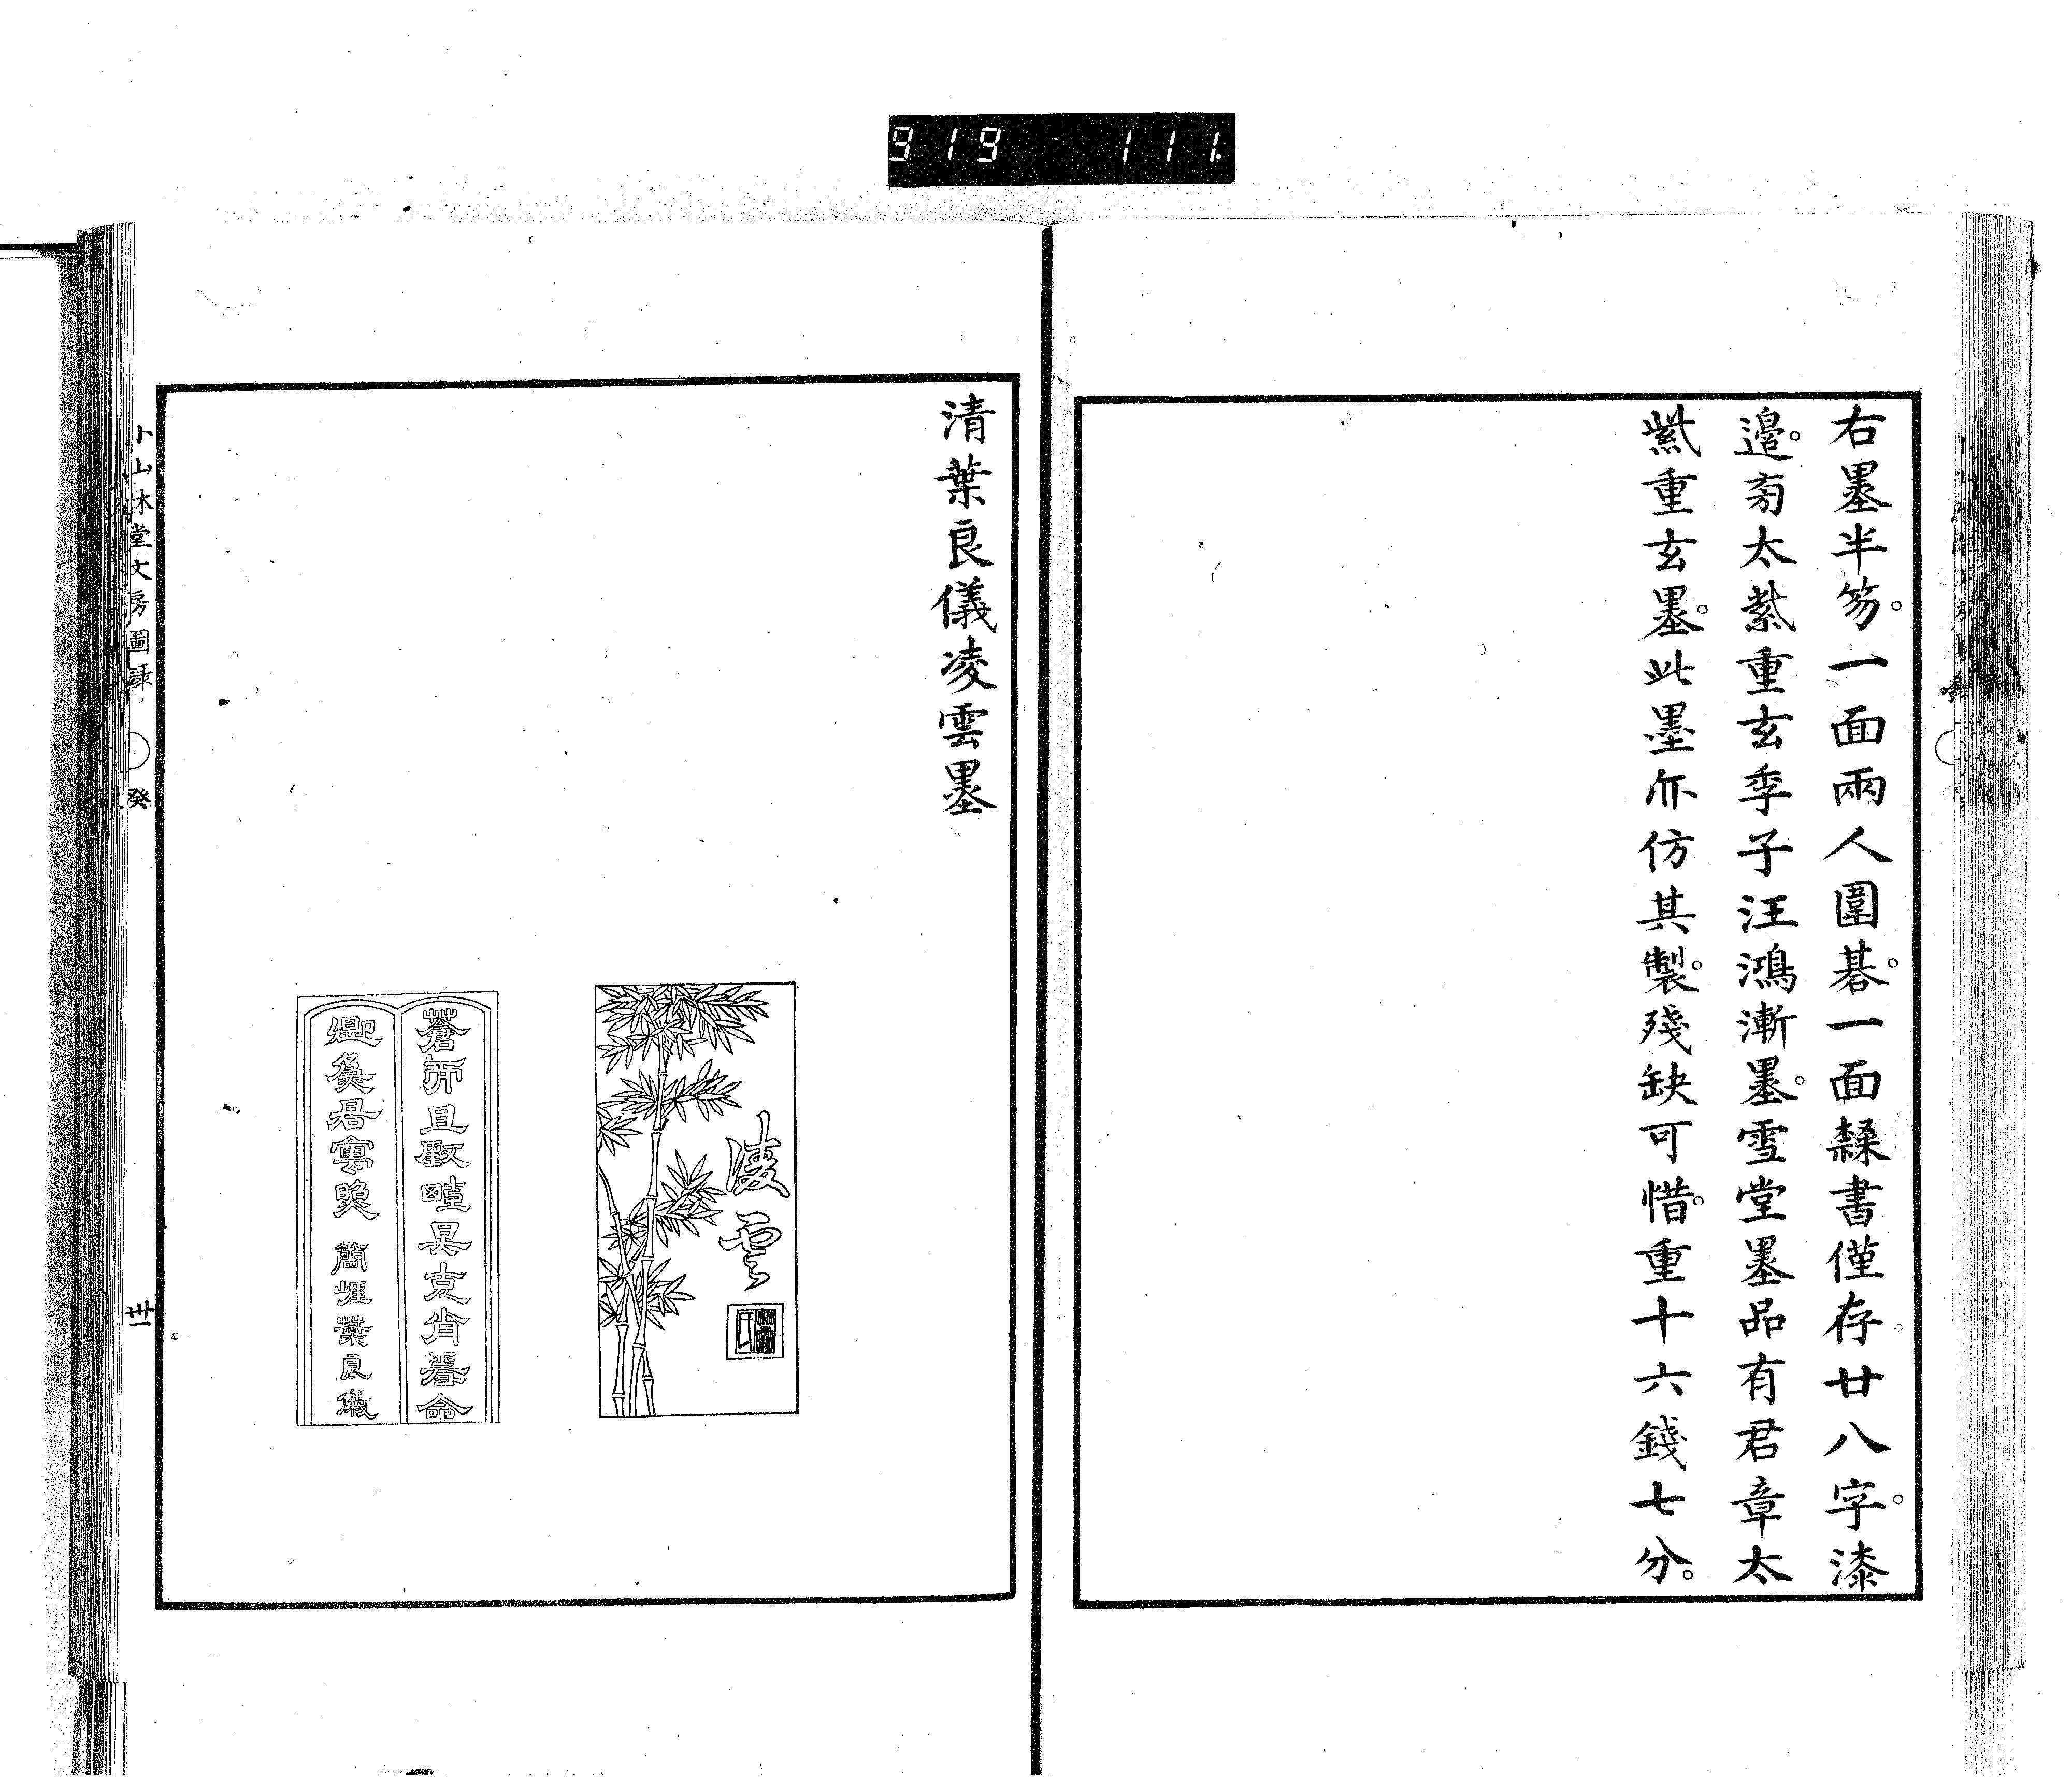 919 111.
右墨半笏。一面兩人圍碁。一面隸書僅存廿八字。漆
邊。㫄太紫重玄季子汪鴻漸墨。雪堂墨品有君章太
紫重玄墨。此墨亦仿其製。殘缺可惜。重十六錢七分。
清葉良儀凌雲墨
凌雲
蒼
命
簡崖葉良儀
小山林堂文房圖錄 癸 卅一